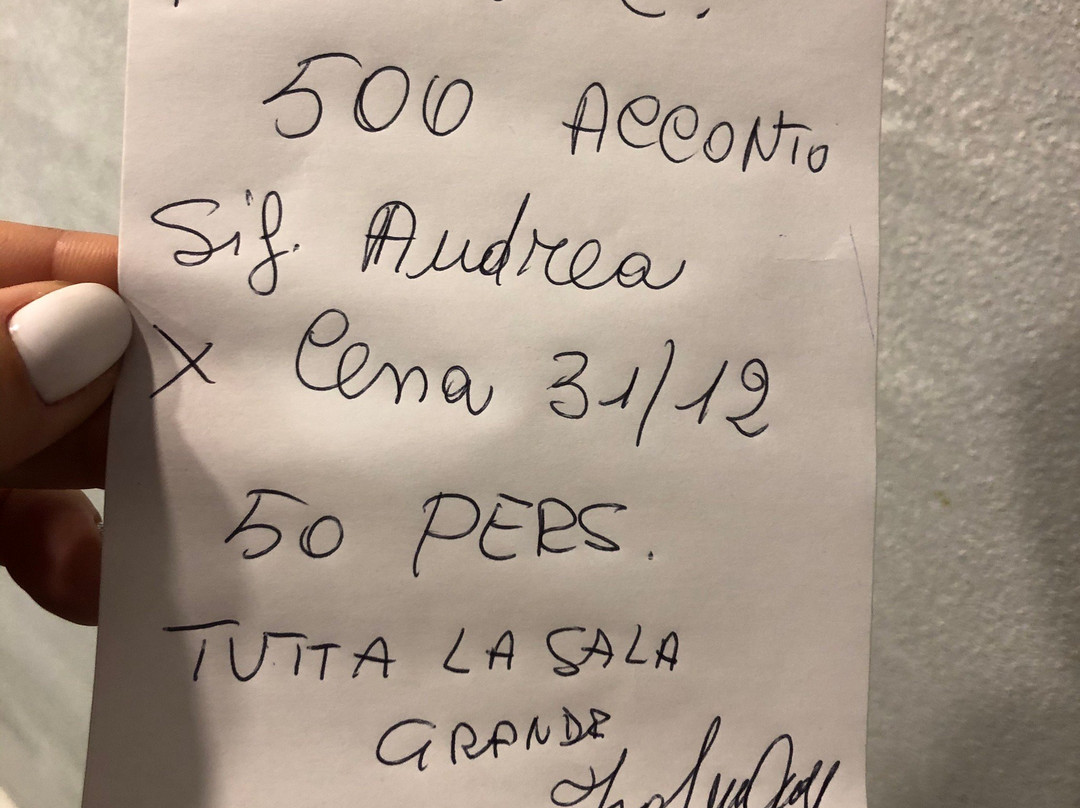 500 ACCONTO
Sig. Andrea
X Cena 31/12
50 PERS.
TUTTA LA SALA
GRANDE